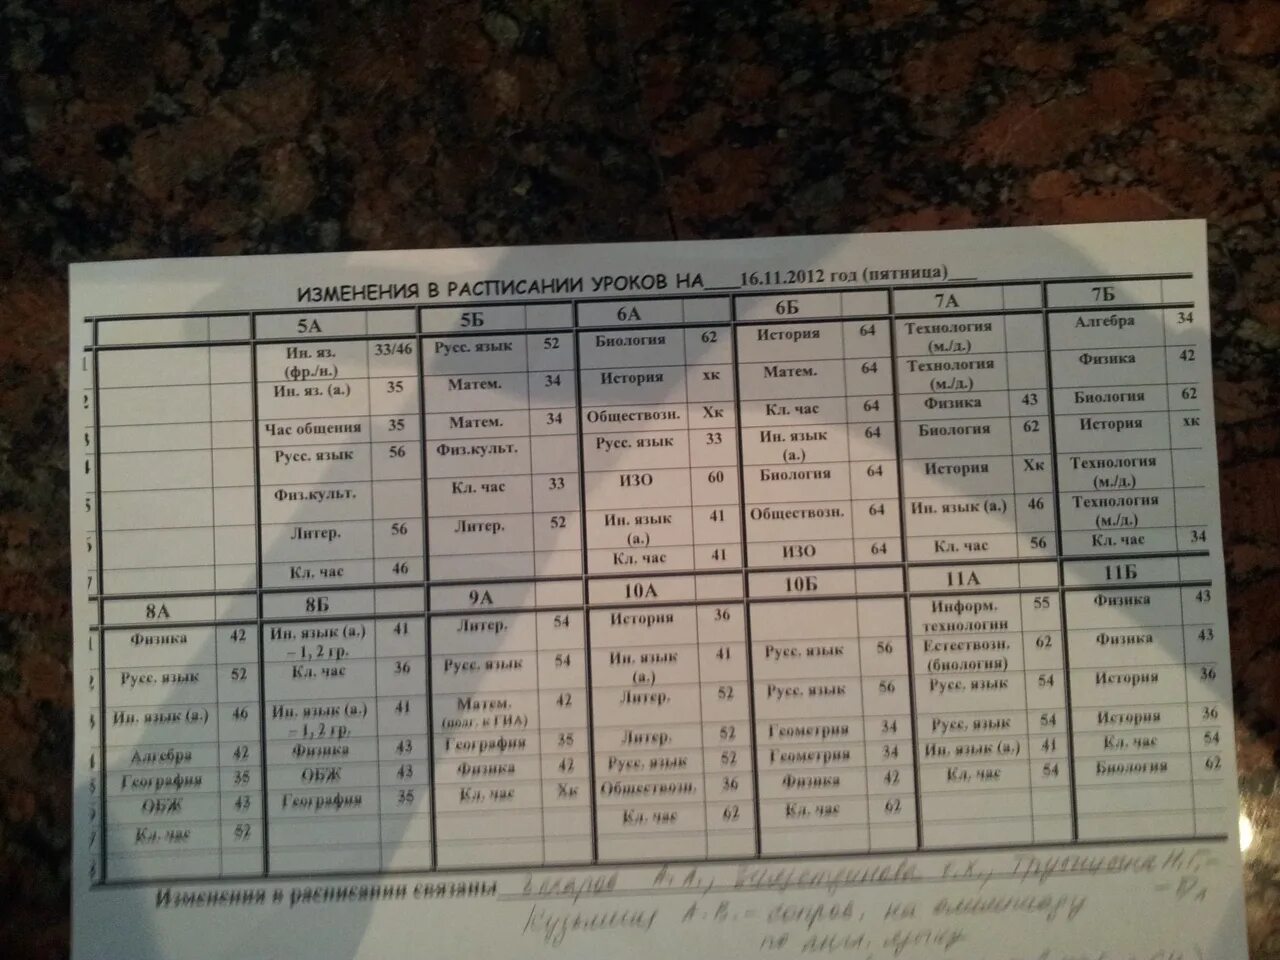 ИЗМЕНЕНИЯ В РАСПИСАНИИ УРОКОВ НА____16.11.2012 год (пятница)___
5А 5Б 6А 6Б 7А 7Б
1 Ин. яз. (фр./н.) 33/46 Русс. язык 52 Биология 62 История 64 Технология (м./д.) Алгебра 34
2 Ин. яз. (а.) 35 Матем. 34 История хк Матем. 64 Технология (м./д.) Физика 42
3 Час общения 35 Матем. 34 Обществозн. Хк Кл. час 64 Физика 43 Биология 62
4 Русс. язык 56 Физ.культ. Русс. язык 33 Ин. язык (а.) 64 Биология 62 История хк
5 Физ.культ. Кл. час 33 ИЗО 60 Биология 64 История Хк Технология (м./д.)
6 Литер. 56 Литер. 52 Ин. язык (а.) 41 Обществозн. 64 Ин. язык (а.) 46 Технология (м./д.)
7 Кл. час 46 Кл. час 41 ИЗО 64 Кл. час 56 Кл. час 34
8А 8Б 9А 10А 10Б 11А 11Б
1 Физика 42 Ин. язык (а.) – 1, 2 гр. 41 Литер. 54 История 36 Информ. технологии 55 Физика 43
2 Русс. язык 52 Кл. час 36 Русс. язык 54 Ин. язык (а.) 41 Русс. язык 56 Естествозн. (биология) 62 Физика 43
3 Ин. язык (а.) 46 Ин. язык (а.) – 1, 2 гр. 41 Матем. (подг. к ГИА) 42 Литер. 52 Русс. язык 56 Русс. язык 54 История 36
4 Алгебра 42 Физика 43 География 35 Литер. 52 Геометрия 34 Русс. язык 54 История 36
5 География 35 ОБЖ 43 Физика 42 Русс. язык 52 Геометрия 34 Ин. язык (а.) 41 Кл. час 54
6 ОБЖ 43 География 35 Кл. час Хк Обществозн. 36 Физика 42 Кл. час 54 Биология 62
7 Кл. час 52 Кл. час 62 Кл. час 62
8
Изменения в расписании связаны А.А.,
А.В. – сопров. на олимпиаду
по англ. языку